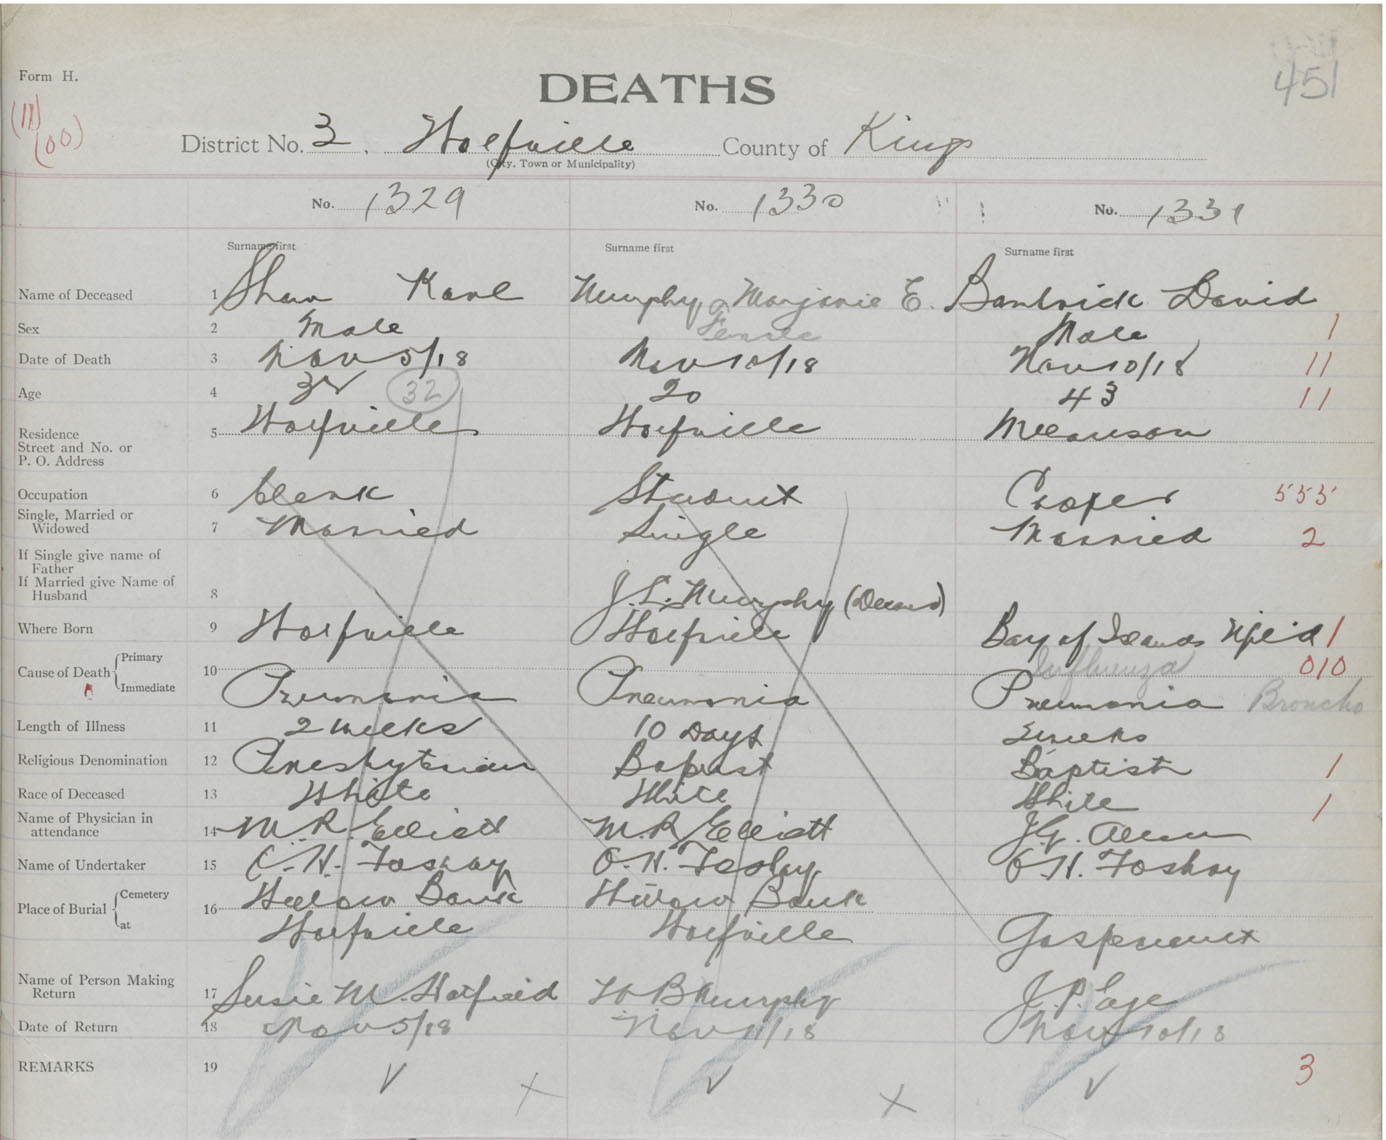 Form H.
DEATHS
451
(11)
(00)
District No. 3. Wolfville County of Kings
(City, Town or Municipality)
No. 1329 No. 1330 No. 1331
Surname first Surname first Surname first
Name of Deceased 1 Shaw Karl Murphy Marjorie E. David
Sex 2 Male Female Male 1
Date of Death 3 Nov 5/18 Nov 10/18 Nov 10/18 11
Age 4 32 (32) 20 43 11
Residence
Street and No. or
P. O. Address 5 Wolfville Wolfville
Occupation 6 Clerk Student Cooper 555
Single, Married or
Widowed 7 Married Single Married 2
If Single give name of
Father
If Married give Name of
Husband 8 J. L. Murphy
Where Born 9 Wolfville Wolfville Bay of Islands Nfld 1
Cause of Death { Primary 10 Influenza 010
Immediate Pneumonia Pneumonia Pneumonia Broncho
Length of Illness 11 2 weeks 10 Days
Religious Denomination 12 Presbyterian Baptist Baptist 1
Race of Deceased 13 White White White 1
Name of Physician in
attendance 14 M R Elliott M. R. Elliott J. G.
Name of Undertaker 15 O. H. Foshay O. H. Foshay O H. Foshay
Place of Burial { Cemetery 16 Willow Bank Willow Bank
at Wolfville Wolfville Gaspereaux
Name of Person Making
Return 17 Susie M. Hatfield W B Murphy J. P.
Date of Return 18 Nov 5/18 Nov 11/18 Nov 10/18
REMARKS 19 3